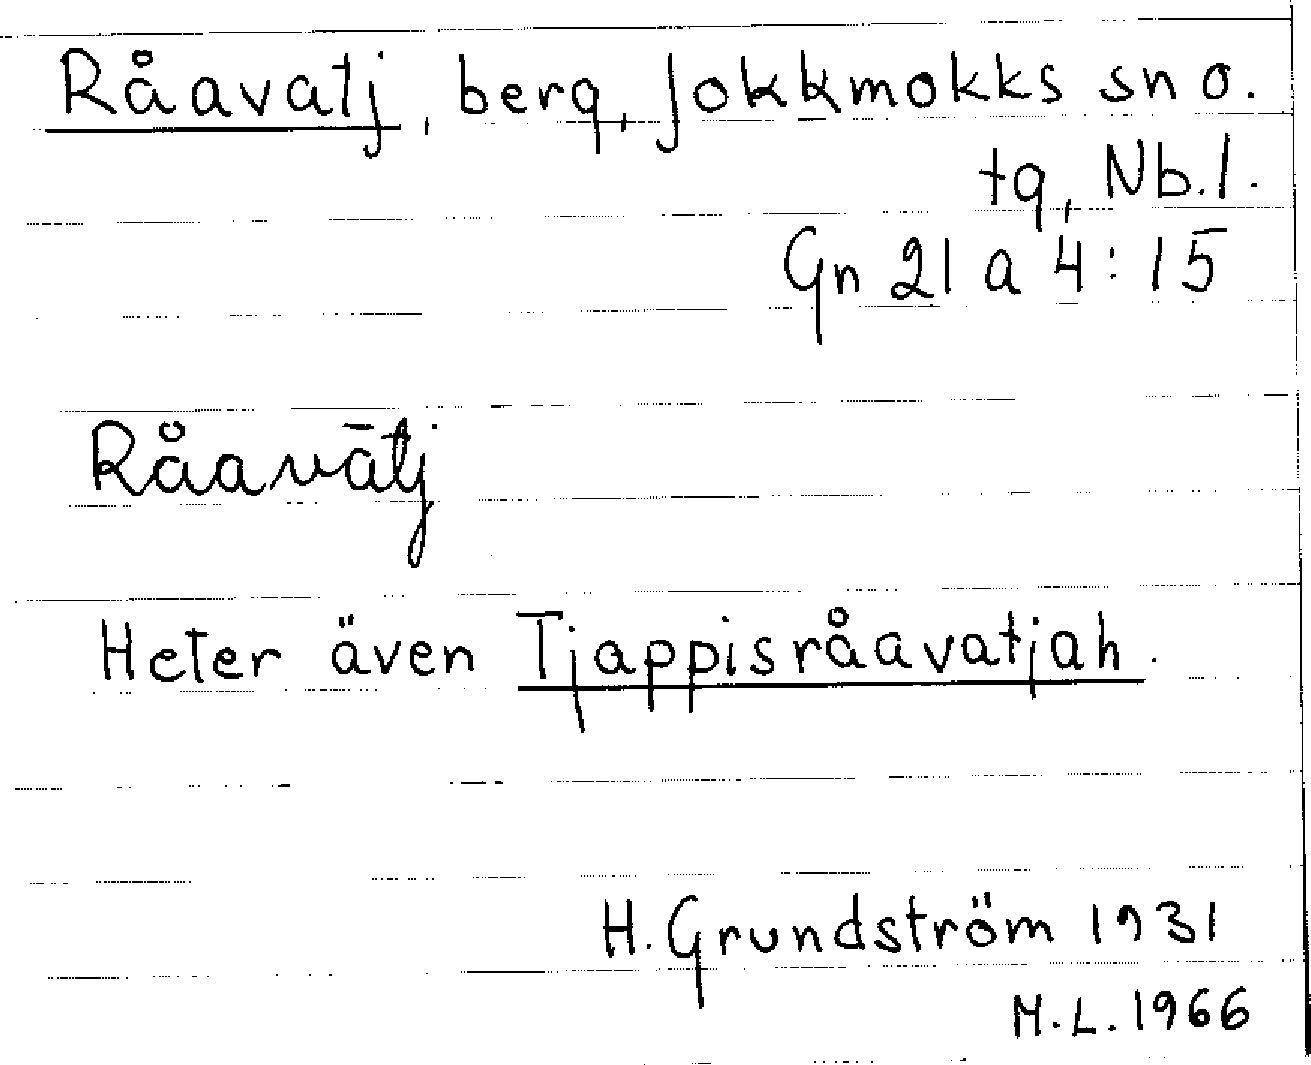 Råavatj, berg, Jokkmokks sn o.
tg, Nb.l.
Gn 21 a 4:15
Råavātj
Heter även Tjappisråavatjah.
H. Grundström 1931
M.L. 1966